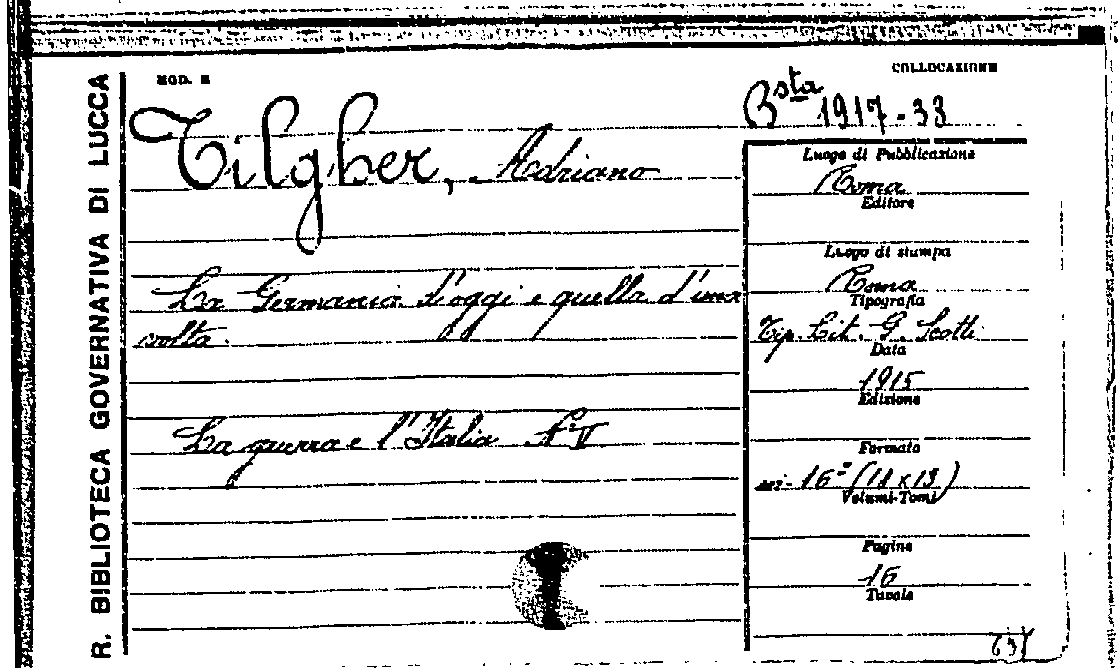 R. BIBLIOTECA GOVERNATIVA DI LUCCA
MOD. E
COLLOCAZIONE
Bsta 1917-33
Tilgher, Adriano
La Germania d'oggi e quella d'una
volta.
La guerra e l'Italia N° V
Luogo di Pubblicazione
Roma
Editore
Luogo di stampa
Roma
Tipografia
Tip. Lit. G. Scotti
Data
1915
Edizione
Formato
in-16° (11x13)
Volumi-Tomi
Pagine
16
Tavole